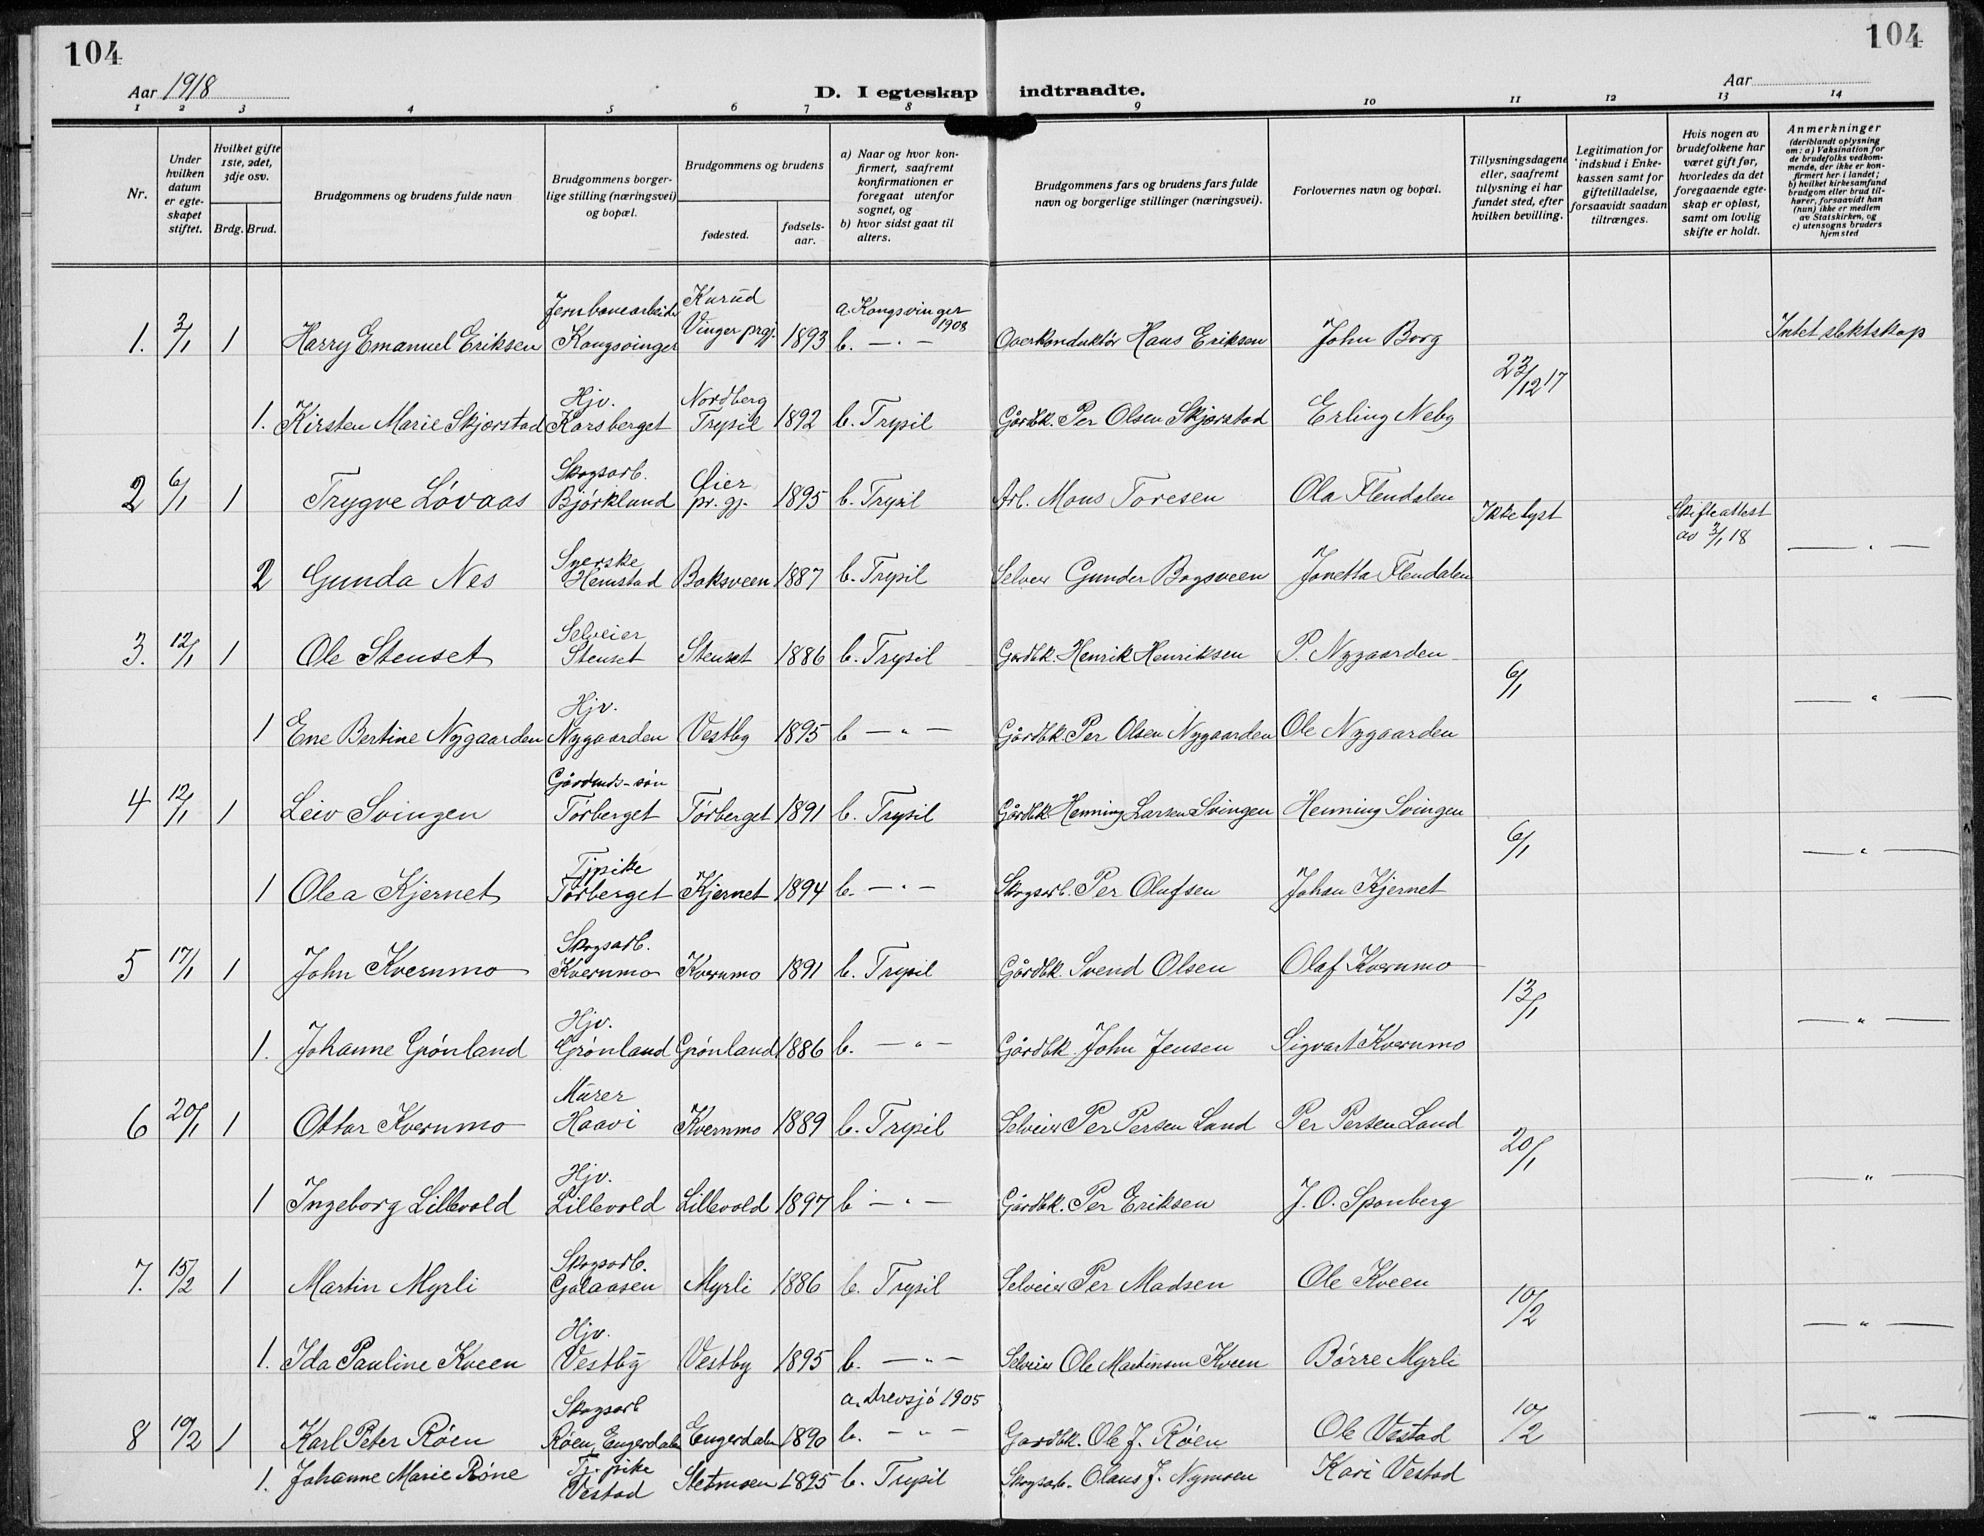 104
104
Aar 1918
D. I egteskap indtraadte.
Aar
1 2 3 4 5 6 7 8 9 10 11 12 13 14
Nr.
Under hvilken datum er egteskapet stiftet.
Hvilket gifte 1ste, 2det, 3dje osv.
Brdg. Brud.
Brudgommens og brudens fulde navn
Brudgommens borgerlige stilling (næringsvei) og bopæl.
Brudgommens og brudens
fødested.
fødselsaar.
a) Naar og hvor konfirmert, saafremt konfirmationen er foregaat utenfor sognet, og
b) hvor sidst gaat til alters.
Brudgommens fars og brudens fars fulde navn og borgerlige stillinger (næringsvei).
Forlovernes navn og bopæl.
Tillysningsdagene eller, saafremt tillysning ei har fundet sted, efter hvilken bevilling.
Legitimation for indskud i Enkekassen samt for giftetilladelse, forsaavidt saadan tiltrænges.
Hvis nogen av brudefolkene har været gift før, hvorledes da det foregaaende egteskap er opløst, samt om lovlig skifte er holdt.
Anmerkninger (deriblandt oplysning om: a) Vaksination for de brudefolks vedkommende, der ikke er konfirmert her i landet; b) hvilket kirkesamfund brudgom eller brud tilhører, forsaavidt han (hun) ikke er medlem av Statskirken, og c) utensogns bruders hjemsted
1. 3/1 1 Harry Emanuel Eriksen Jernbanearbeider Kongsvinger Kurud Vinger prgj. 1893 a. Kongsvinger 1908 b. — " — Overkonduktör Hans Eriksen John Borg Intet slektskap
23/12 17
1. Kirsten Marie Skjørstad Hjv. Korsberget Nordberg Trysil 1892 b. Trysil Gårdbk. Per Olsen Skjørstad Erling Neby
2 6/1 1 Trygve Lövaas Skogsarb. Björkland Öier pr.gj. 1895 b. Trysil Arb. Mons Toresen Ola Flendalen
Ikke lyst Skifteattest av 3/1 18 — " —
2 Gunda Nes Hemstad Boksveen 1887 b. Trysil Selveier Gunder Bogsveen Jonetta Flendalen
3. 12/1 1 Ole Stenset Selveier Stenset Stenset 1886 b. Trysil Gardbk. Henrik Henriksen P. Nygaarden
6/1 — " —
1 Ene Bertine Nygaarden Hjv. Nygaarden Vestby 1895 b — " — Gårdbk. Per Olsen Nygaarden Ole Nygaarden
4 12/1 1 Leiv Svingen Törberget Törberget 1891 b. Trysil Gårdbk. Henning Larsen Svingen Henning Svingen
6/1 — " —
1 Olea Kjernet Tj.pike Törberget Kjernet 1894 b. — " — Skogsarb. Per Olufsen Johan Kjernet
5 17/1 1 John Kvernmo Skogsarb. Kvernmo Kvernmo 1891 b. Trysil Gårdbk. Svend Olsen Olaf Kvernmo
13/1 — " —
1. Johanne Grönland Hjv. Grönland Grönland 1886 b. — " — Gårdbk. John Jensen Sigvart Kvernmo
6 20/1 1 Ottar Kvernmo Murer Haavi Kvernmo 1889 b. Trysil Selveier Per Persen Lund Per Persen Lund
20/1 — " —
1 Ingeborg Lillevold Hjv. Lillevold Lillevold 1897 b — " — Gårdbk. Per Eriksen J. O. Sponberg
7. 15/2 1 Martin Myrli Skogsarb. Galaasen Myrli 1886 b. Trysil Selveier Per Madsen Ole Kveen
10/2 — " —
1. Ida Pauline Kveen Hjv. Vestby Vestby 1895 b. — " — Selveier Ole Martinsen Kveen Börre Myrli
8 19/2 1 Karl Peter Röen Skogsarb Röen, Engerdalen Engerdalen 1890 a. Drevsjö 1905 b. — " — Gardbk. Ole J. Röen Ole Vestad
10/2 — " —
1. Johanne Marie Röne Tj.pike Vestad Sletmoen 1895 b. Trysil Skogsarb. Olaus J. Nymoen Kari Vestad